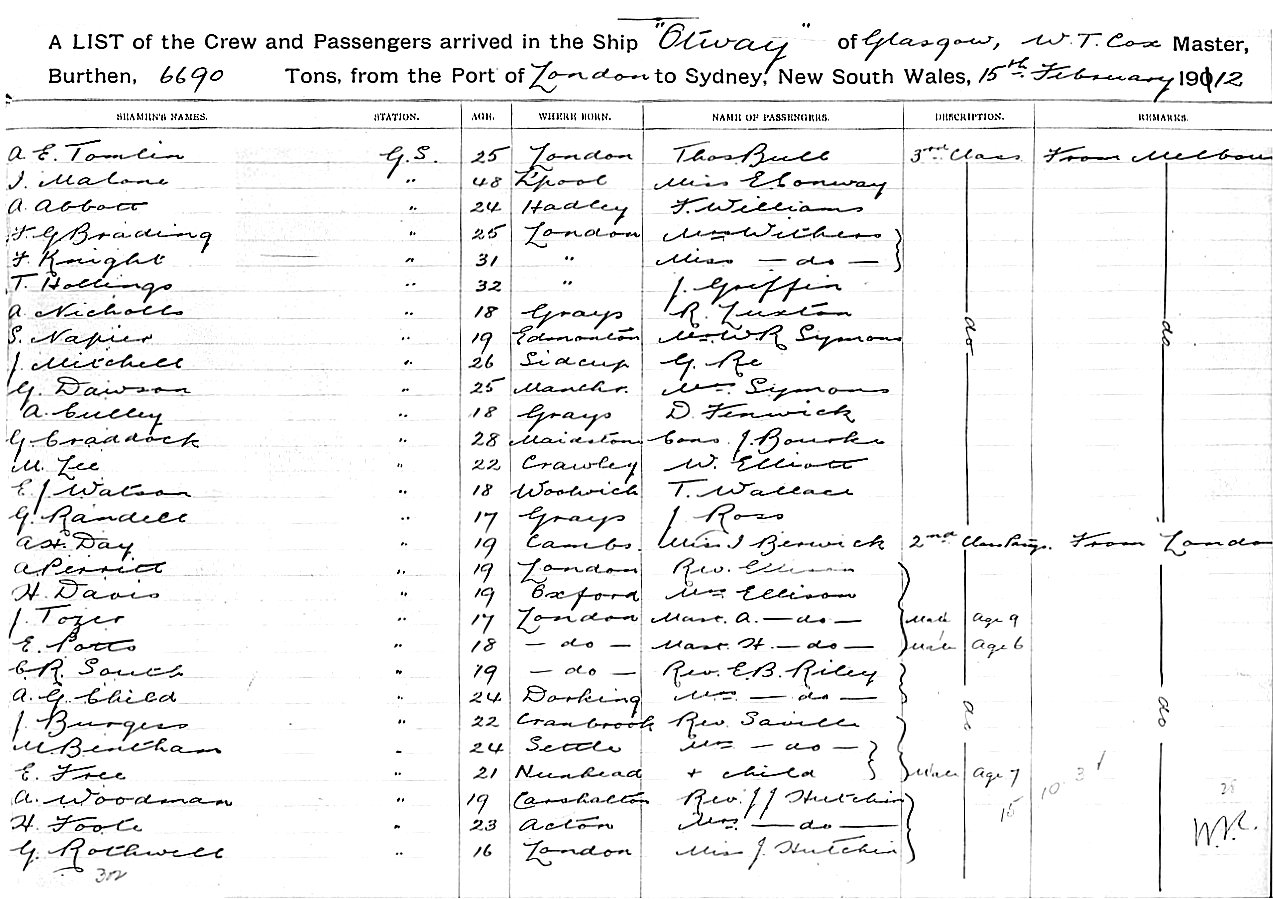 A LIST of the Crew and Passengers arrived in the Ship "Otway" of Glasgow, W. T. Cox Master,
Burthen, 6690 Tons, from the Port of London to Sydney, New South Wales, 15th February 1912
SEAMEN'S NAMES. STATION. AGE. WHERE BORN. NAME OF PASSENGERS. DESCRIPTION. REMARKS.
A E. Tomlin G.S. 25 London Thos Bull 3rd Class From Melbou
J. Malone " 48 L'pool Miss E Conway
A. Abbott " 24 Hadley F. Williams
F. G Brading " 25 London Mrs Withers
F. Knight " 31 " Miss — do —
T. Hollings 32 " J. Griffin
A. Nicholls " 18 Grays R. Tuxton
S. Napier " 19 Edmonton Mr. W. R Symons do do
J. Mitchell " 26 Sidcup G. Re
G. Dawson " 25 Manchr. Mrs. Symons
A. Culley " 18 Grays D. Fenwick
G Craddock " 28 Maidston Cons. J. Bourke
M. Lee " 22 Crawley W. Elliott
E. J. Watson " 18 Woolwich T. Wallace
G. Randell " 17 Grays J. Ross
A. H. Day " 19 Cambs. Miss J Berwick 2nd Class From London
A Perritt " 19 London Rev. Ellison
H. Davis " 19 Oxford Mrs Ellison
J. Tozer " 17 London Mast. A. — do — Male Age 9
E. Potts " 18 — do — Mast. H. — do — Male Age 6
C. R. South " 19 — do — Rev. E. B. Riley
A. G. Child " 24 Dorking Mrs — do — do do
J. Burgess " 22 Cranbrook Rev. Saville
M Bentham " 24 Settle Mrs — do —
E. Free " 21 Nunhead + child Male Age 7
A. Woodman " 19 Carshalton Rev. J J Hutchin 15 10 3
H. Foote " 23 Acton Mrs. — do — W.R.
G. Rothwell " 16 London Miss J. Hutchin
302